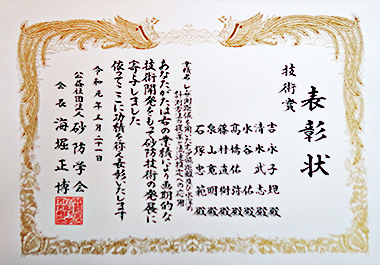 表彰状
技術賞
吉永子規殿
清水武志殿
水谷佑殿
高橋佑弥殿
篠村直樹殿
泉山寛明殿
石塚忠範殿
業績名
あなたがたは右の業績により画期的な
技術開発をもって砂防技術の発展に
寄与しました
依ってここに功績を称え表彰いたします
令和元年五月二十一日
公益社団法人砂防学会
会長 海堀正博